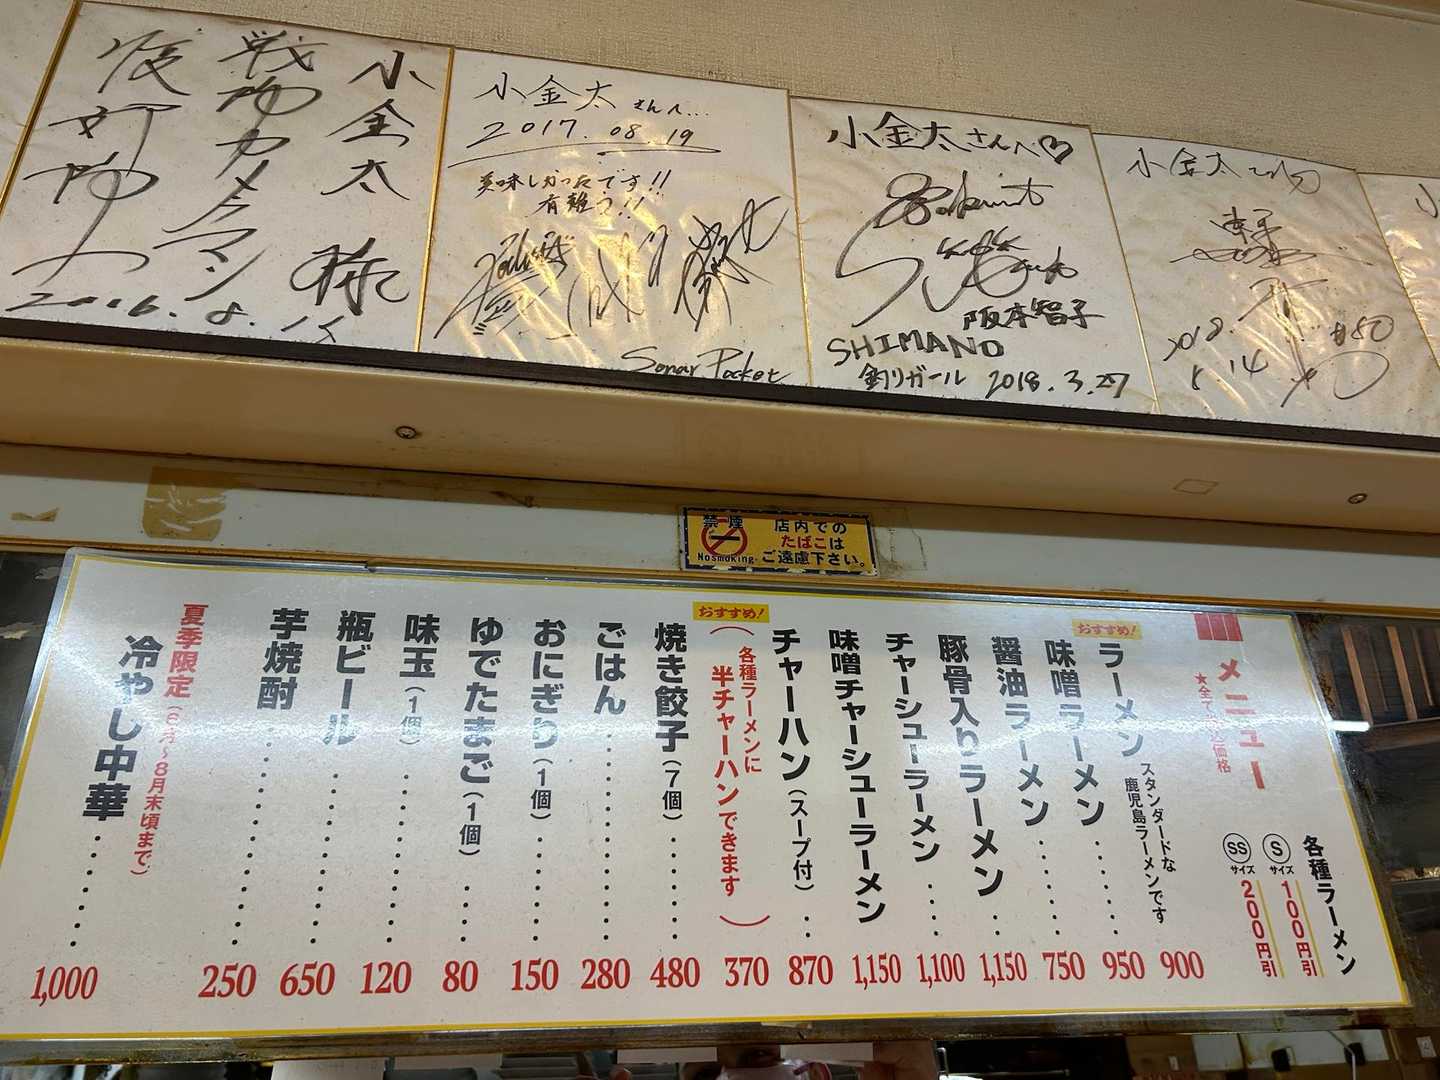 小金太
戦場カメラマン
2016.8.15
小金太さんへ...
2017.08.19
美味しかったです!!
有難う!!
Sonar Pocket
小金太さんへ♡
阪本智子
SHIMANO
釣りガール 2018.3.27
小金太さん江
禁煙
Nosmoking
店内での
たばこは
ご遠慮下さい。
メニュー
★全て税込価格
各種ラーメン
Sサイズ 100円引
SSサイズ 200円引
ラーメン スタンダードな鹿児島ラーメンです 900
おすすめ!
味噌ラーメン 950
醤油ラーメン 750
豚骨入りラーメン 1,150
チャーシューラーメン 1,100
味噌チャーシューラーメン 1,150
チャーハン(スープ付) 870
おすすめ!
(各種ラーメンに半チャーハンできます) 370
焼き餃子(7個) 480
ごはん 280
おにぎり(1個) 150
ゆでたまご(1個) 80
味玉(1個) 120
瓶ビール 650
芋焼酎 250
夏季限定(6月~8月末頃まで)
冷やし中華 1,000